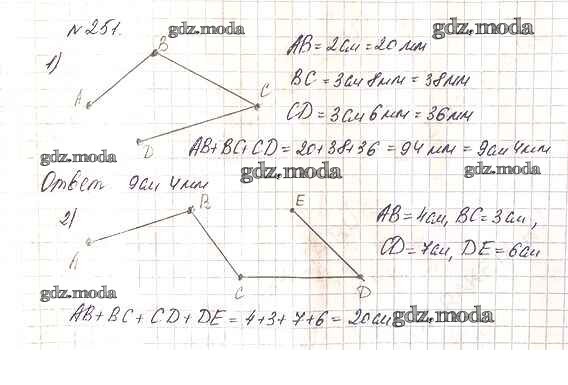 № 251.
gdz.moda
gdz.moda
1)
A
B
C
D
AB = 2см = 20 мм
BC = 3см 8мм = 38мм
CD = 3см 6мм = 36мм
AB+BC+CD = 20+38+36 = 94 мм = 9см 4мм
gdz.moda
gdz.moda
gdz.moda
Ответ 9см 4мм
2)
A
B
C
D
E
AB = 4см, BC = 3см,
CD = 7см, DE = 6см
gdz.moda
AB + BC + CD + DE = 4+3+7+6 = 20см
gdz.moda